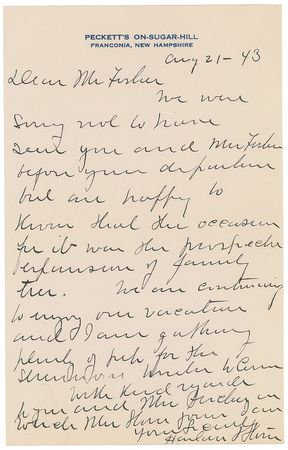 PECKETT'S ON-SUGAR-HILL
FRANCONIA, NEW HAMPSHIRE
Aug 21 - 43
Dear Mr Forbes
We were
sorry not to have
seen you and Mrs Forbes
before your departure
but are happy to
know that the occasion
for it was the prospective
expansion of family
tree. We are continuing
to enjoy our vacation
and I am gathering
plenty of pep for the
strenuous winter
With kind regards
to you and Mrs in
which Mrs Stone joins I am
Yours
Harlan F Stone